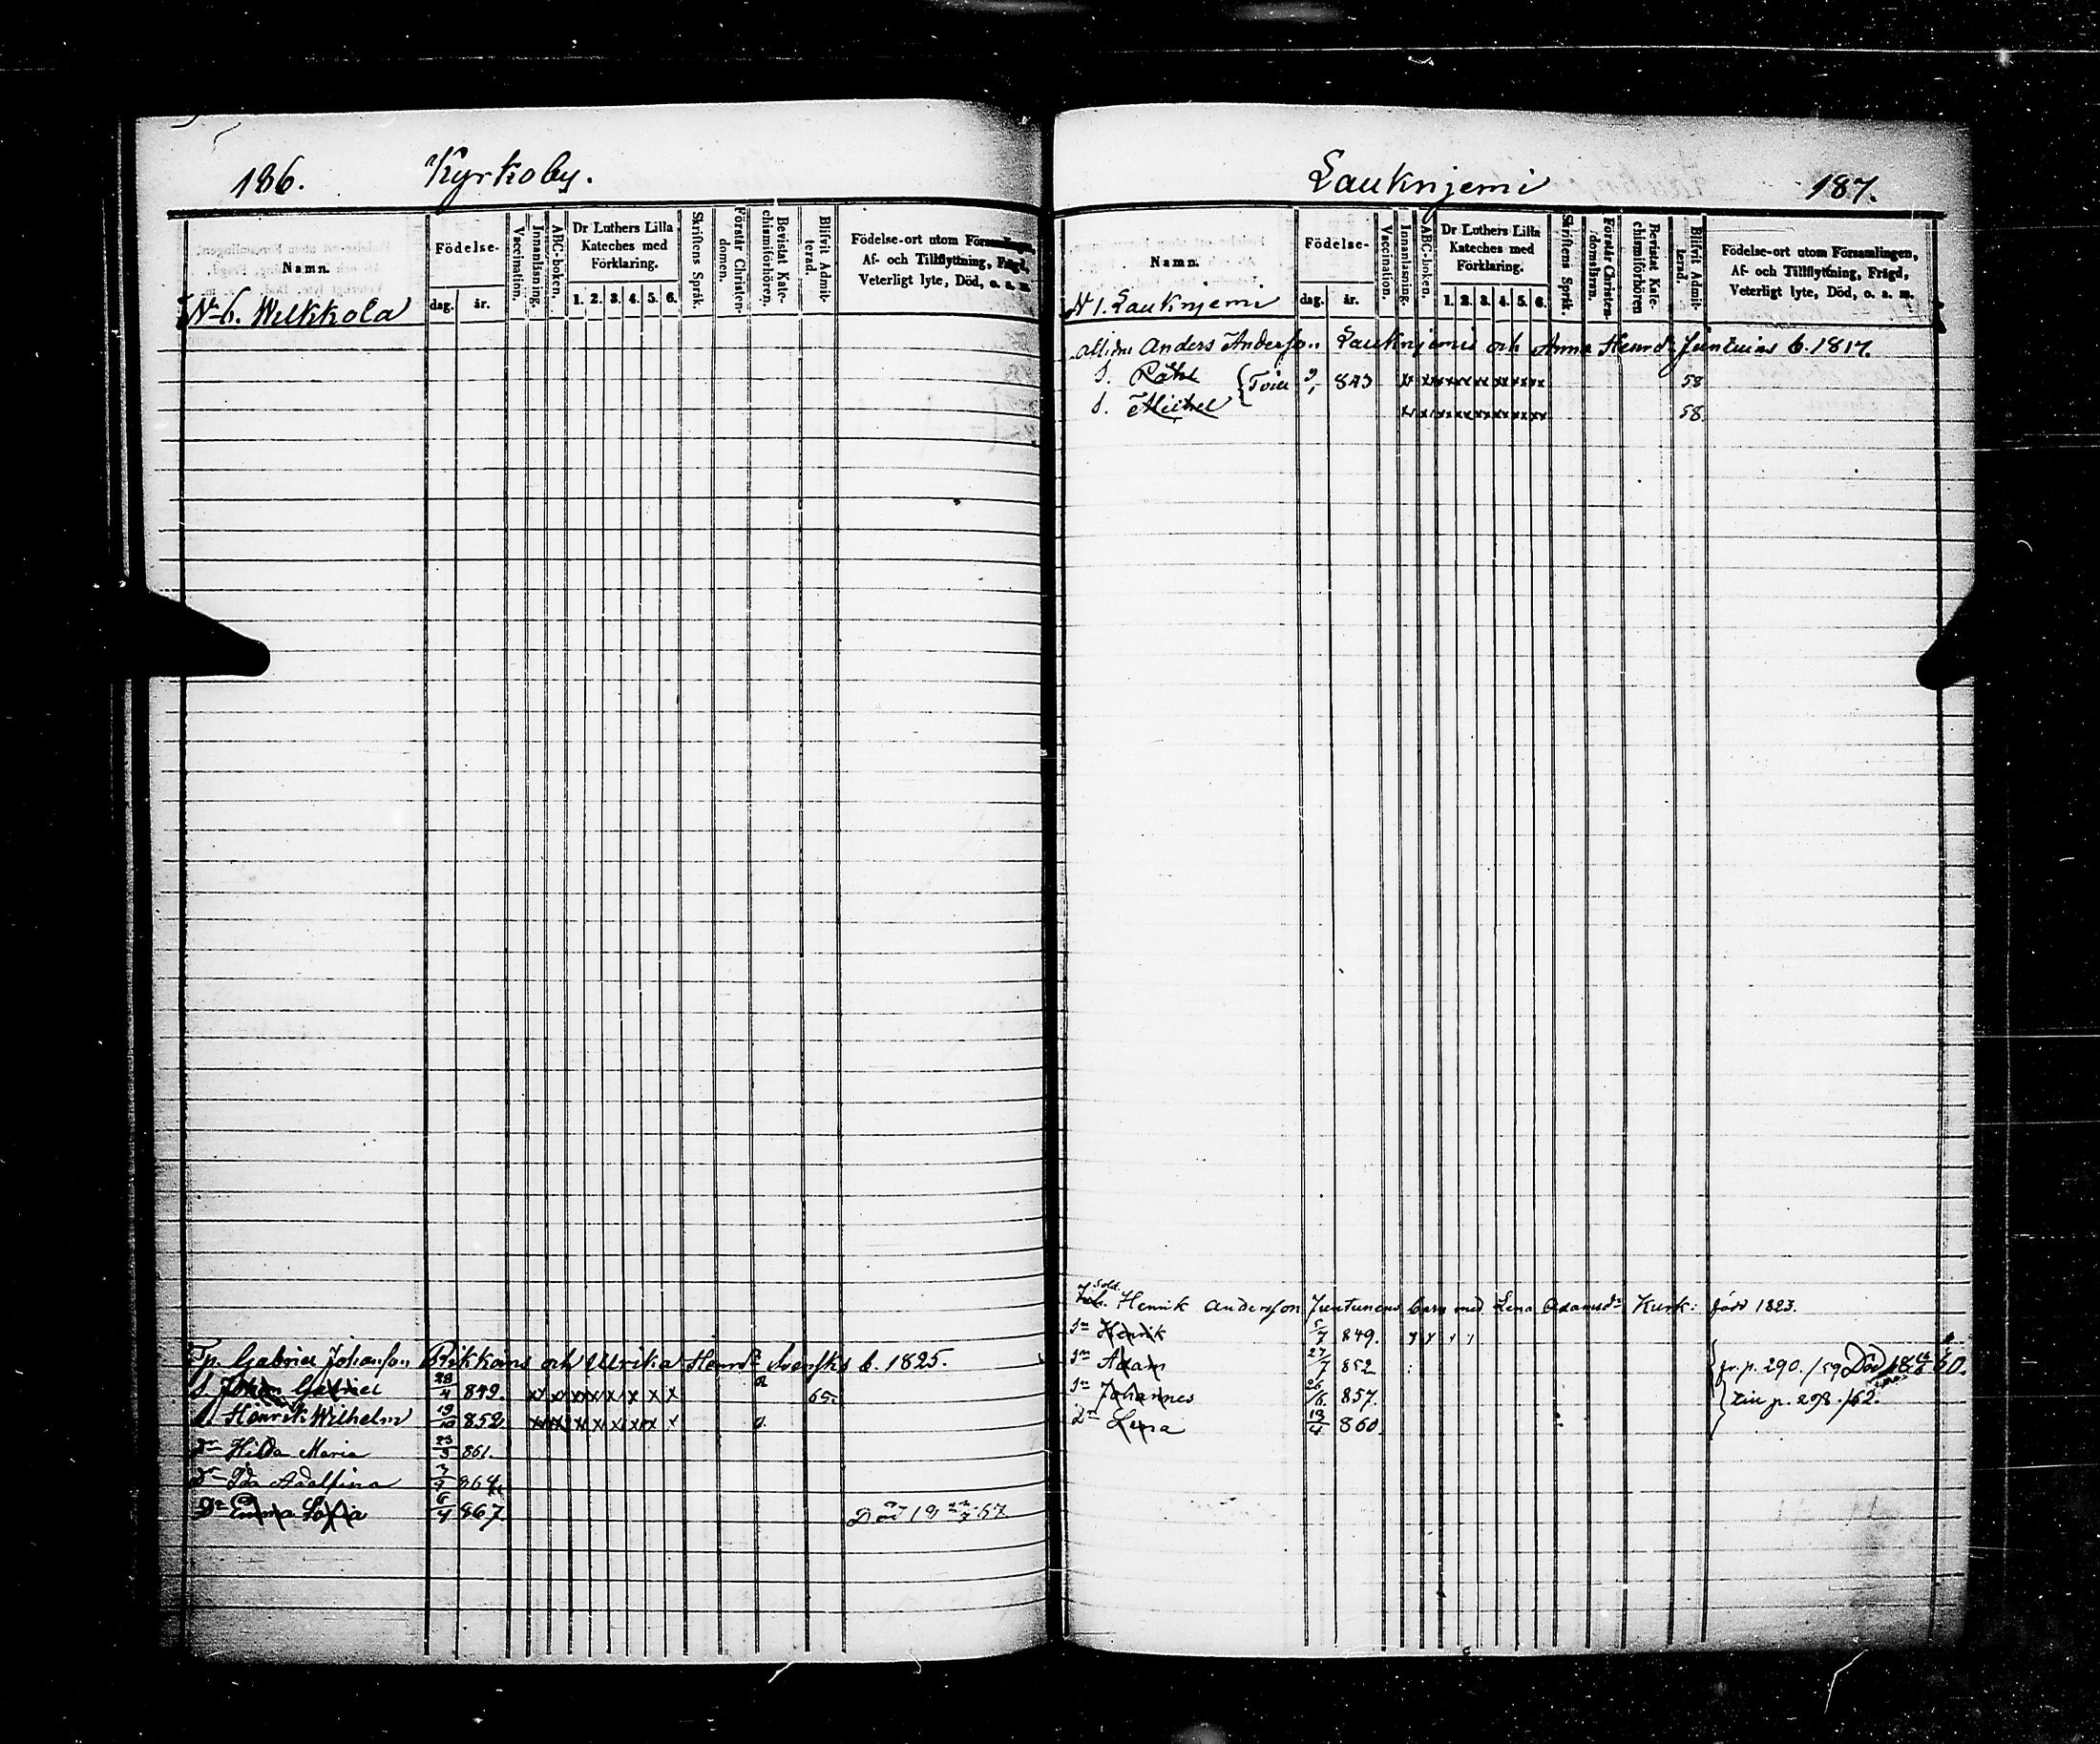 186. Kyrkoby.
Namn.
Födelse-
dag. år.
Vaccination.
Innanläsning.
ABC-boken.
Dr Luthers Lilla
Kateches med
Förklaring.
1. 2. 3. 4. 5. 6.
Skriftens Språk.
Förstår Christen-
domen.
Bevistat Kate-
chismiförhören.
Blifvit Admit-
terad.
Födelse-ort utom Församlingen,
Af- och Tillflyttning, Frägd,
Veterligt lyte, Död, o. s. m.
N 6. Wilkkola
Tp. Gabriel Johansson Pikkains och Ulrika Henrd: Svensks b. 1825.
S Johan Gabriel 28/4 849. x x x x x x x x 65.
S. Henrik Wilhelm 19/10 852 x x x x x x x x
Dr Hilda Maria 23/3 861.
Dr Ida Adolfina 864
Dr Emma Sofia 6/4 867 Död 18 67
Lauknjemi 187.
Namn.
Födelse-
dag. år.
Vaccination.
Innanläsning.
ABC-boken.
Dr Luthers Lilla
Kateches med
Förklaring.
1. 2. 3. 4. 5. 6.
Skriftens Språk.
Förstår Christen-
domsläran.
Bevistat Kate-
chismiförhören
Blifvit Admit-
terad.
Födelse-ort utom Församlingen,
Af- och Tillflyttning, Frägd,
Veterligt lyte, Död, o. s. m.
N 1. Lauknjemi
Anders Anderson Lauknjemis och Anna Henrd: Juntuins b. 1817.
S. 843 58
S. Michel 58
Sold. Henrik Andersson Juntunens barn med Lena Adamsdr Kurk: född 1823.
Sn Henrik 5/7 849.
Sn Adam 27/7 852 fr. p. 290. /59 Död 60.
Sn Johannes 26/6 857. till p. 298. /62.
Dr Lena 860.